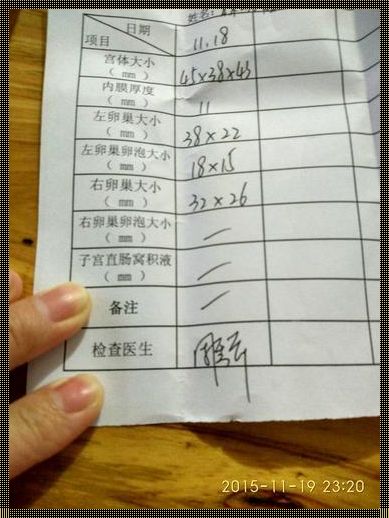 姓名：
日期
项目
11.18
宫体大小
（ mm ）
45×38×43
内膜厚度
（ mm ）
11
左卵巢大小
（ mm ）
38×22
左卵巢卵泡大小
（ mm ）
18×15
右卵巢大小
（ mm ）
32×26
右卵巢卵泡大小
（ mm ）
—
子宫直肠窝积液
（ mm ）
—
备注
—
检查医生
2015-11-19 23:20